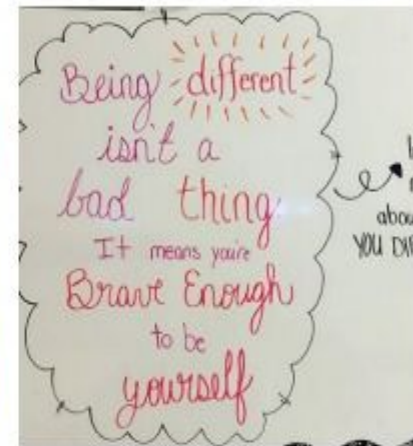 Being different
isn't a
bad thing
It means you're
Brave Enough
to be
yourself
abou
YOU DI